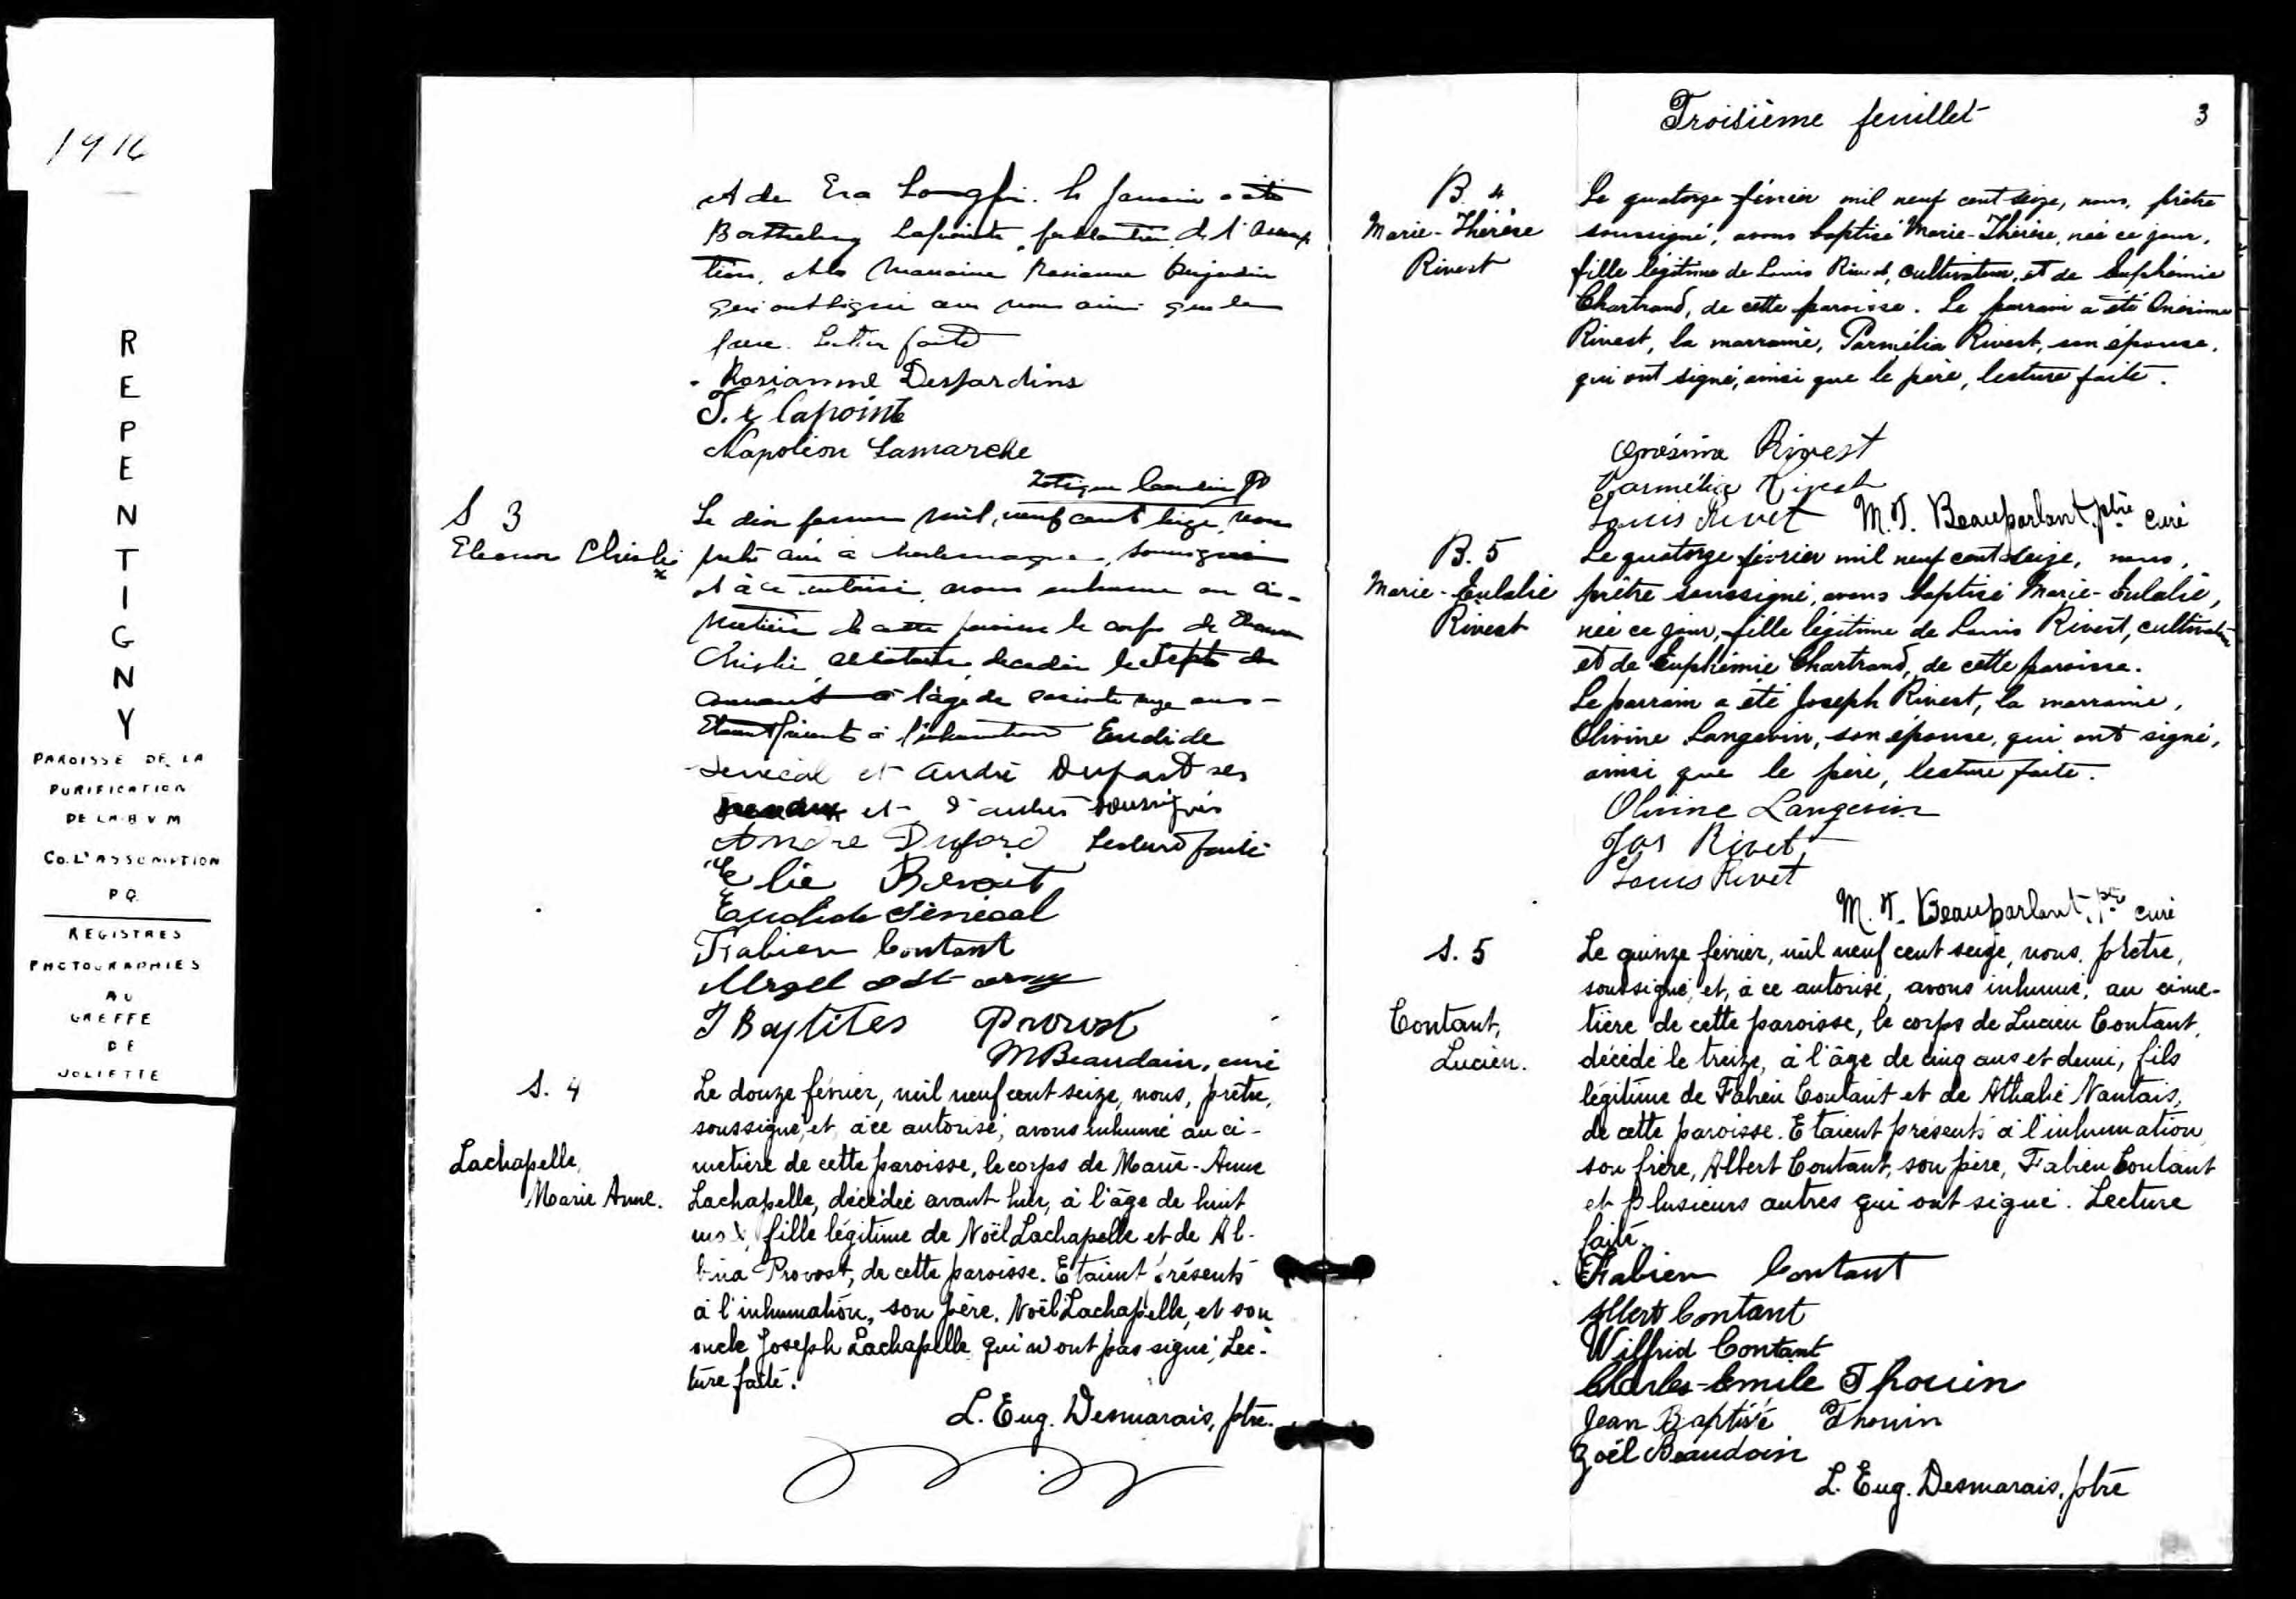 1916
REPENTIGNY
PAROISSE DE LA
PURIFICATION
DE LA B V M
CO. L'ASSOMPTION
P Q.
REGISTRES
PHOTOGRAPHIES
AU
GREFFE
DE
JOLIETTE
et de
Lapointe de l'Assomp
tion, et la Marraine Rosianna Desjardins
qui ont signé avec nous ainsi que le
père. Lecture faite
Rosianne Desjardins
Lapointe
Napoléon Lamarche
S 3
Eleonor Christie
Le dix mil neuf cent seize nous
soussigné
et à ce autorisé avons inhumé au ci-
metière de cette paroisse le corps de
Christie, décédée le sept du
courant à l'âge de ans
Etaient présents à l'inhumation Euclide
Senécal et André Dufort ses
et d'autres soussignés
André Duford Lecture faite
Elie Benoit
Euclide Sénécal
Fabien Contant
J Baptites Provost
M Beaudoin, curé
S. 4
Lachapelle,
Marie Anne.
Le douze février, mil neuf cent seize, nous, prêtre,
soussigné, et, à ce autorisé, avons inhumé au ci-
metière de cette paroisse, le corps de Marie-Anne
Lachapelle, décédée avant hier, à l'âge de huit
fille légitime de Noël Lachapelle et de Al-
bina Provost, de cette paroisse. Etaient présents
à l'inhumation, son père, Noël Lachapelle, et son
oncle Joseph Lachapelle qui n'ont pas signé, Lec-
ture faite.
L. Eug. Desmarais, ptre.
Troisième feuillet 3
B. 4
Marie-Thérèse
Rivest
Le quatorze février mil neuf cent seize, nous, prêtre
soussigné, avons baptisé Marie-Thérèse, née ce jour,
fille légitime de Louis Rivest, cultivateur, et de Euphémie
Chartrand, de cette paroisse. Le parrain a été Onésime
Rivest, la marraine, Parmélia Rivest, son épouse,
qui ont signé, ainsi que le père, lecture faite.
Onésime Rivest
Parmélia Rivest
Louis Rivet M.T. Beauparlant, ptre curé
B. 5
Marie-Eulalie
Rivest
Le quatorze février mil neuf cent seize, nous,
prêtre soussigné, avons baptisé Marie-Eulalie,
née ce jour, fille légitime de Louis Rivest, cultivateur
et de Euphémie Chartrand, de cette paroisse.
Le parrain a été Joseph Rivest, la marraine,
Olivine Langevin, son épouse, qui ont signé,
ainsi que le père, lecture faite.
Olivine Langevin
Jos Rivet
Louis Rivet
M. T. Beauparlant, ptre curé
S. 5
Contant,
Lucien.
Le quinze février, mil neuf cent seize, nous, prêtre,
soussigné, et, à ce autorisé, avons inhumé, au cime-
tière de cette paroisse, le corps de Lucien Contant,
décédé le treize, à l'âge de cinq ans et demi, fils
légitime de Fabien Contant et de Athalie Nantais,
de cette paroisse. Etaient présents à l'inhumation,
son frère, Albert Contant, son père, Fabien Contant
et plusieurs autres qui ont signé. Lecture
faite.
Fabien Contant
Albert Contant
Wilfrid Contant
Charles-Emile Thouin
Jean Baptiste Thouin
Zoël Beaudoin
L. Eug. Desmarais, ptre